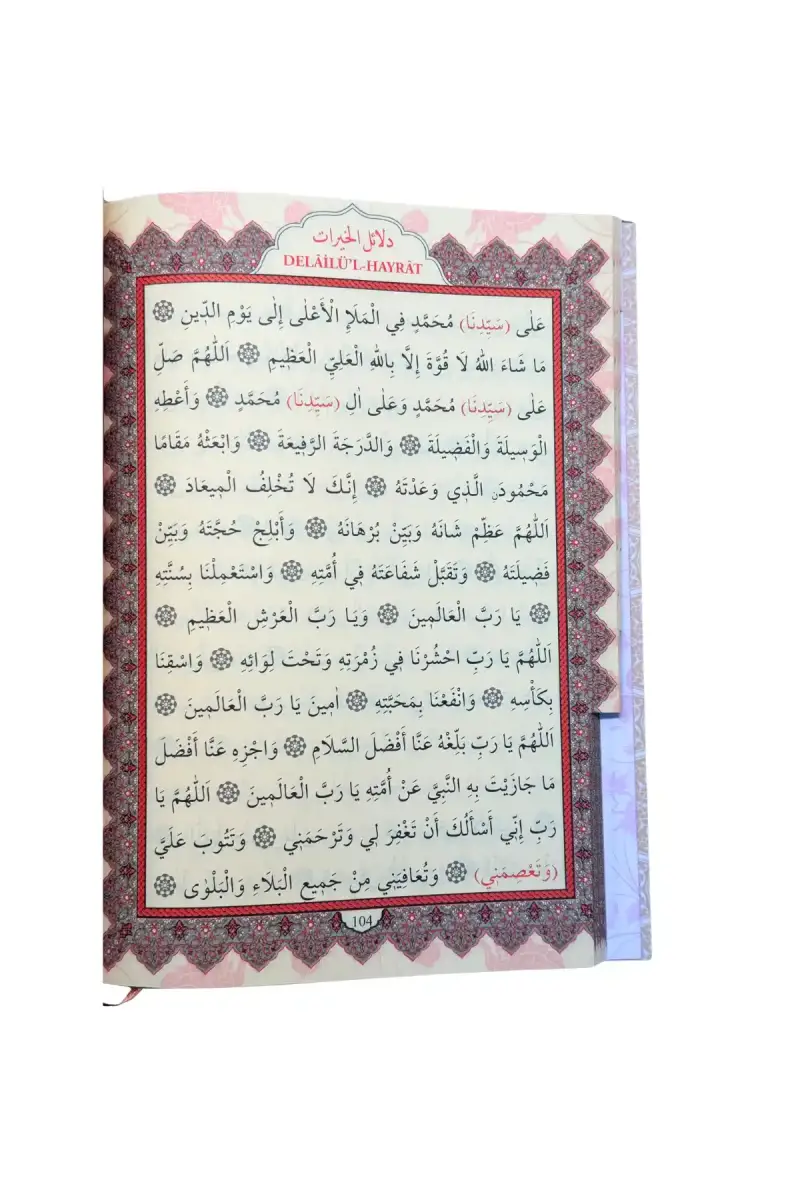 دلائل الخيرات
DELÂİLÜ'L-HAYRÂT
عَلٰى (سَيِّدِنَا) مُحَمَّدٍ فِي الْمَلَاِ الْأَعْلٰى إِلٰى يَوْمِ الدّ۪ينِ ۞
مَا شَاءَ اللّٰهُ لَا قُوَّةَ إِلَّا بِاللّٰهِ الْعَلِيِّ الْعَظ۪يمِ ۞ اَللّٰهُمَّ صَلِّ
عَلٰى (سَيِّدِنَا) مُحَمَّدٍ وَعَلٰى اٰلِ (سَيِّدِنَا) مُحَمَّدٍ ۞ وَأَعْطِهِ
الْوَس۪يلَةَ وَالْفَض۪يلَةَ ۞ وَالدَّرَجَةَ الرَّف۪يعَةَ ۞ وَابْعَثْهُ مَقَامًا
مَحْمُودَنِ الَّذ۪ي وَعَدْتَهُ ۞ إِنَّكَ لَا تُخْلِفُ الْم۪يعَادَ ۞
اَللّٰهُمَّ عَظِّمْ شَانَهُ وَبَيِّنْ بُرْهَانَهُ ۞ وَأَبْلِجْ حُجَّتَهُ وَبَيِّنْ
فَض۪يلَتَهُ ۞ وَتَقَبَّلْ شَفَاعَتَهُ ف۪ي أُمَّتِهِ ۞ وَاسْتَعْمِلْنَا بِسُنَّتِهِ
۞ يَا رَبَّ الْعَالَم۪ينَ ۞ وَيَا رَبَّ الْعَرْشِ الْعَظ۪يمِ ۞
اَللّٰهُمَّ يَا رَبِّ احْشُرْنَا ف۪ي زُمْرَتِهِ وَتَحْتَ لِوَائِهِ ۞ وَاسْقِنَا
بِكَأْسِهِ ۞ وَانْفَعْنَا بِمَحَبَّتِهِ ۞ اٰم۪ينَ يَا رَبَّ الْعَالَم۪ينَ ۞
اَللّٰهُمَّ يَا رَبِّ بَلِّغْهُ عَنَّا أَفْضَلَ السَّلَامِ ۞ وَاجْزِهِ عَنَّا أَفْضَلَ
مَا جَازَيْتَ بِهِ النَّبِيَّ عَنْ أُمَّتِهِ يَا رَبَّ الْعَالَم۪ينَ ۞ اَللّٰهُمَّ يَا
رَبِّ إِنّ۪ي أَسْأَلُكَ أَنْ تَغْفِرَ ل۪ي وَتَرْحَمَن۪ي ۞ وَتَتُوبَ عَلَيَّ
(وَتَعْصِمَن۪ي) ۞ وَتُعَافِيَن۪ي مِنْ جَم۪يعِ الْبَلَاءِ وَالْبَلْوٰى ۞
104